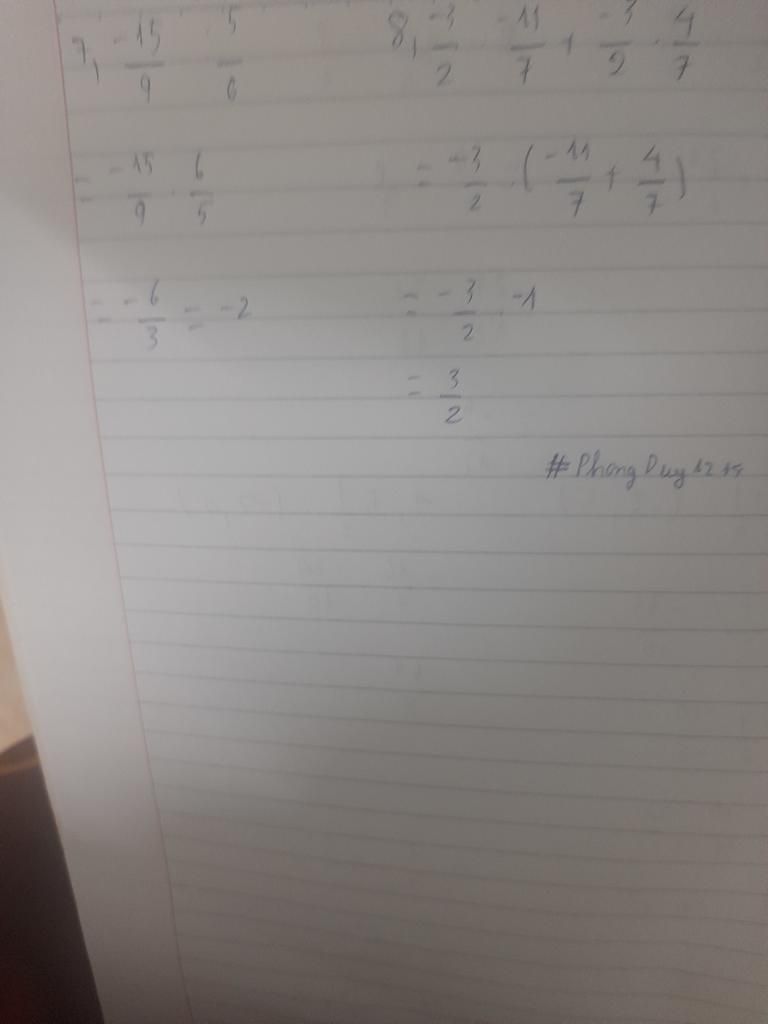 7, -15/9 : 5/6
= -15/9 . 6/5
= -6/3 = -2
8, -3/2 . -11/7 + -3/2 . 4/7
= -3/2 . (-11/7 + 4/7)
= -3/2 . -1
= 3/2
#PhongDuy1215